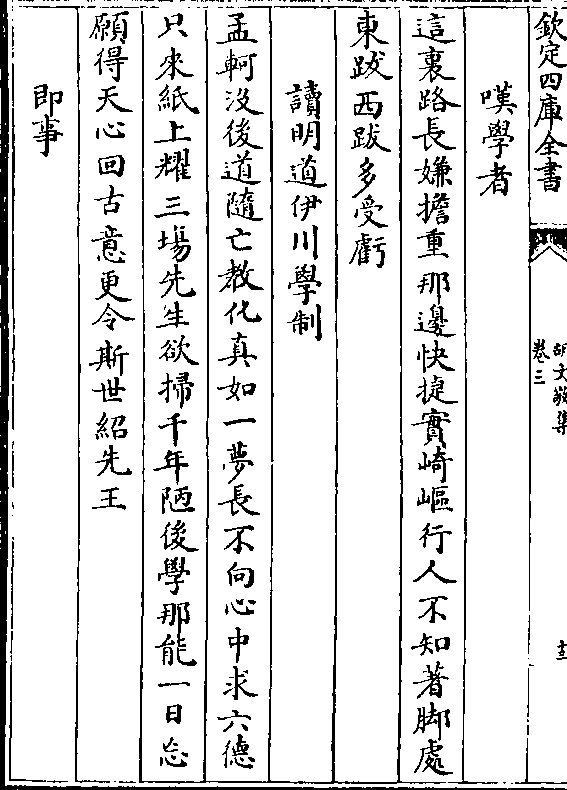 欽定四庫全書
胡文敬集
卷三
十三
嘆學者
這裏路長嫌擔重那邊快捷實崎嶇行人不知著脚處
東跋西跋多受虧
讀明道伊川學制
孟軻沒後道隨亡教化真如一夢長不向心中求六德
只來紙上耀三場先生欲掃千年陋後學那能一日忘
願得天心回古意更令斯世紹先王
即事